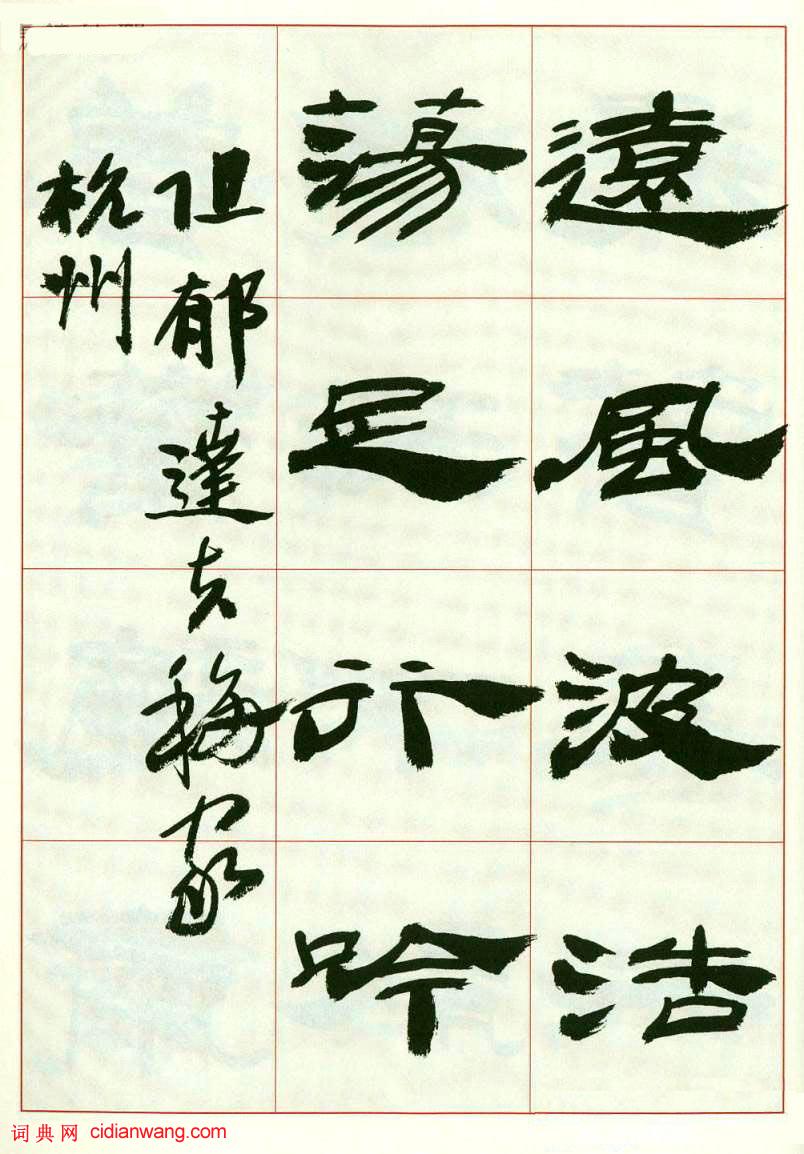 遠風波浩
蕩足行吟
阻郁達夫移家
杭州
词典网 cidianwang.com